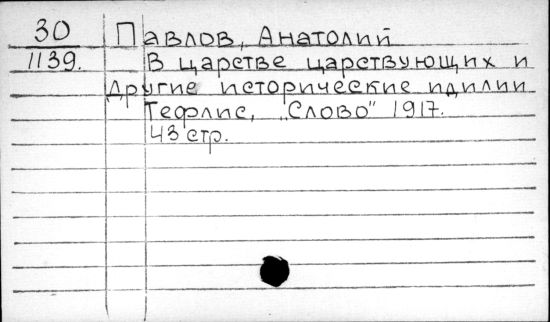 30 Павлов, Анатолий
1139. В царстве царствующих и
другие исторические идилии
Тефлис, „Слово" 1917.
43 стр.